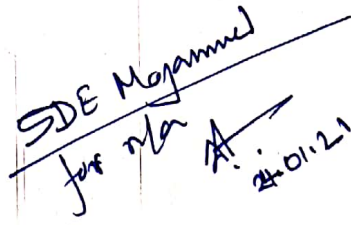 SDE Mojammed
for n/a
24.01.21